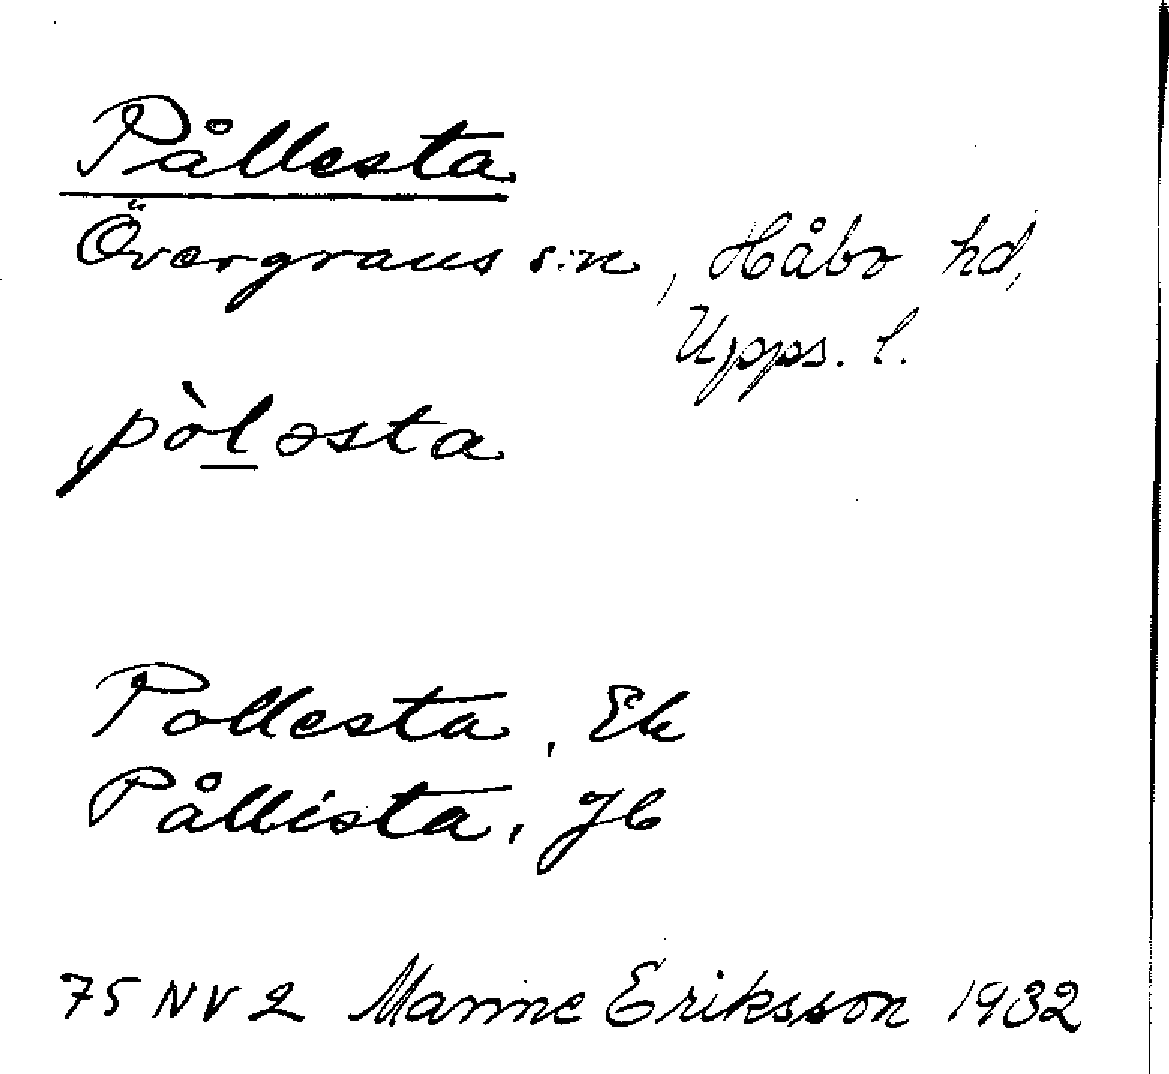 Pållesta
Övergrans s:n, Håbo hd,
Upps. l.
pòl̲əsta
Pollesta, Ek
Pållista, Jb
75 NV 2 Manne Eriksson 1932